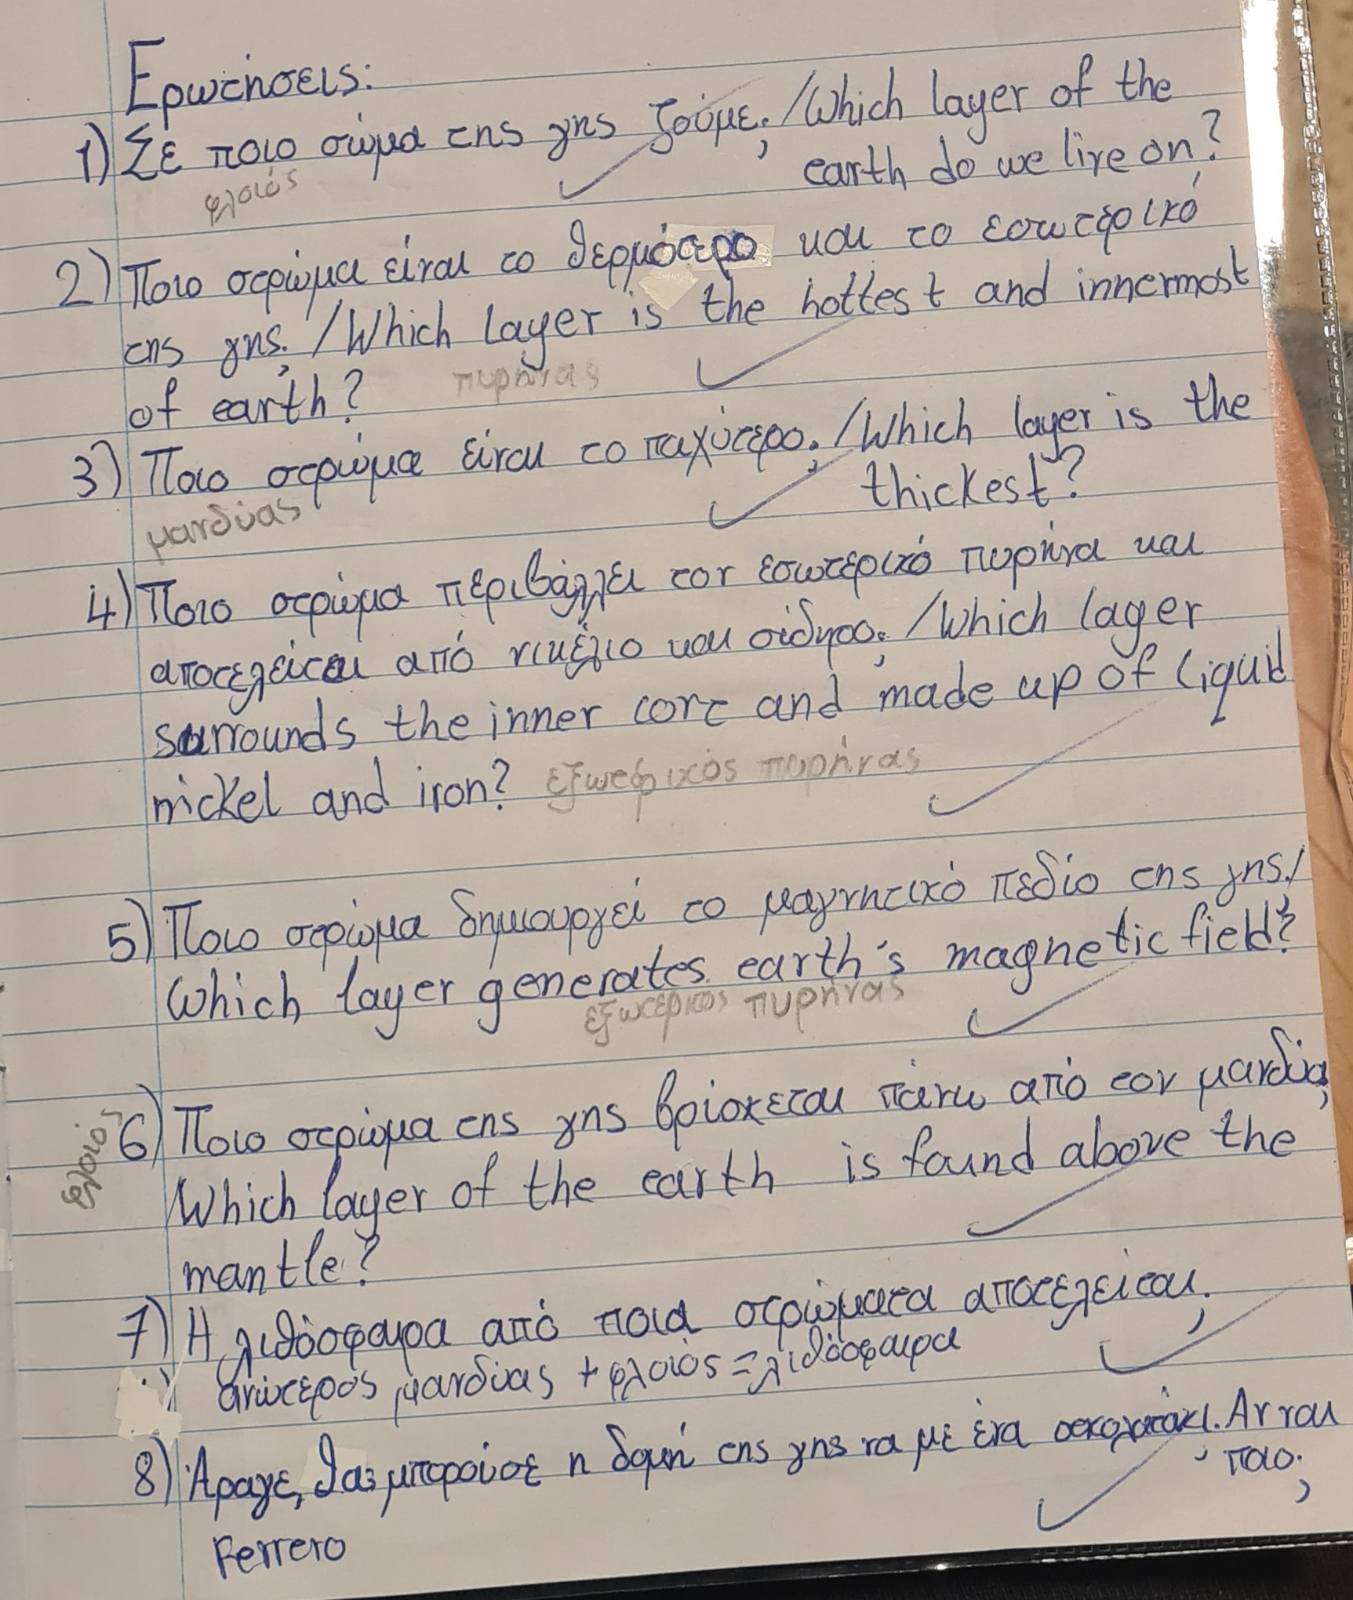 Ερωτήσεις:
1) Σε ποιο σώμα της γης ζούμε; /Which layer of the
earth do we live on?
φλοιός
2) Ποιο στρώμα είναι το θερμότερο και το εσωτερικό
της γης; /Which layer is the hottest and innermost
of earth? πυρήνας
3) Ποιο στρώμα είναι το παχύτερο; /Which layer is the
thickest?
μανδύας
4) Ποιο στρώμα περιβάλλει τον εσωτερικό πυρήνα και
αποτελείται από νικέλιο και σίδηρο; /Which layer
surrounds the inner core and made up of liquid
nickel and iron? εξωτερικός πυρήνας
5) Ποιο στρώμα δημιουργεί το μαγνητικό πεδίο της γης;/
Which layer generates earth's magnetic field?
εξωτερικός πυρήνας
6) Ποιο στρώμα της γης βρίσκεται πάνω από τον μανδύα;
φλοιός
Which layer of the earth is found above the
mantle?
7) Η λιθόσφαιρα από ποια στρώματα αποτελείται;
ανώτερος μανδύας + φλοιός = λιθόσφαιρα
8) Άραγε, θα μπορούσε η δομή της γης να με ένα σοκολατάκι; Αν ναι
ποιο;
Ferrero